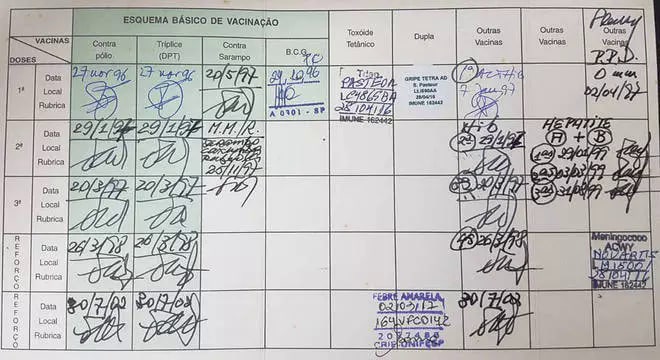 ESQUEMA BÁSICO DE VACINAÇÃO
VACINAS
DOSES
Contra pólio
Tríplice (DPT)
Contra Sarampo
B.C.G.
Toxóide Tetânico
Dupla
Outras Vacinas
Outras Vacinas
Outras Vacinas
P.P.D.
1ª
Data
Local
Rubrica
27 nov 96
27 nov 96
20/5/97
A 0901 - SP
PASTEUR
28/04/16
IMUNE 162442
GRIPE TETRA AD
S. Pasteur
28/04/16
IMUNE 162442
1ª ACTHIB
0 mm
02/04/97
2ª
Data
Local
Rubrica
29/1/97
29/1/97
M.M.R.
Sarampo
Caxumba
Rubéola
20/11/97
Hib
2ª 29/1/97
HEPATITE
A + B
1ª 29/01/99
2ª 03/03/99
3ª 31/08/99
3ª
Data
Local
Rubrica
20/3/97
20/3/97
3ª 20/3/97
REFORÇO
Data
Local
Rubrica
26/3/98
26/3/98
4ª 26/3/98
Meningococo
ACWY
NOVARTIS
28/04/16
IMUNE 162442
REFORÇO
Data
Local
Rubrica
30/7/02
30/7/02
FEBRE AMARELA
02/03/17
164VFC014Z
CRIE-UNIFESP
30/7/02